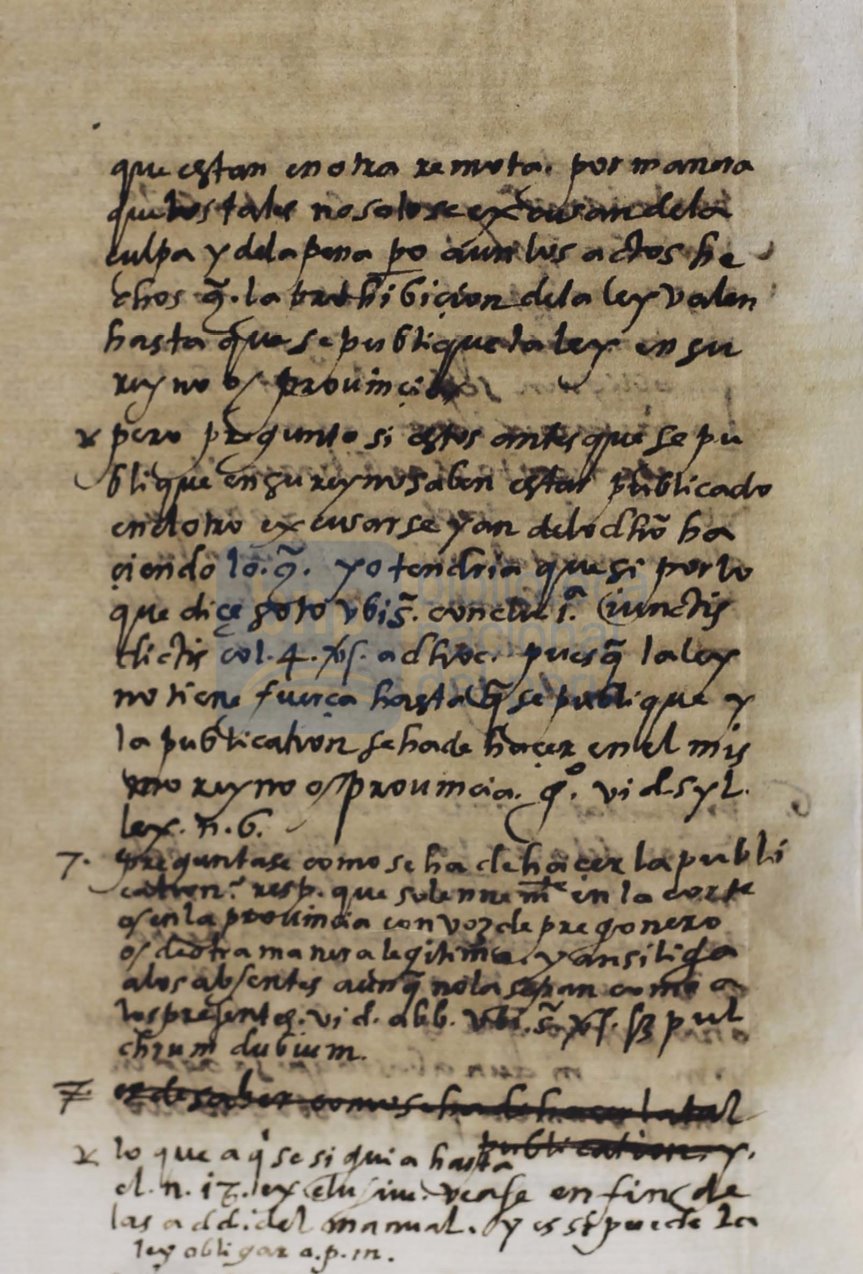 que estan en otra remota. por manera
que los tales no solo se excusan dela
culpa y dela pena po aun los actos he
chos q̃. la prohibicion dela ley valen
hasta que se publique la ley en su
reyno o provincia
pero pregunto si estos antes que se pu
blique en su reyno saben estar publicado
en el otro excusarse yan delo dho ha
ciendo lo. q̃. yo tendria que si por lo
que diçe soto vbi s̃. conclus. 1.ª iunctis
dictis col. 4. ad hoc. pues q̃ la ley
no tiene fuerça hasta q̃ se publique y
la publication se ha de haçer en el mis
mo reyno o provincia. qº. vid. syl.
lex. n. 6.
7. preguntase como se ha de haçer la publi
cation. resp. que solennemte en la corte
o en la provincia con voz de pregonero
o de otra manera legitima. y ansi liga
a los absentes aunq̃ no la sepan como a
los presentes. vid. abb. vbi. s̃. pul
chrum dubium.
7 es de saber como se ha de hacer la tal
publication y.
lo que aq̃ se siguia hasta
el. n. 17. exclusive. vease en fin de
las addi. del manual. y es si puede la
ley obligar a. p. m.